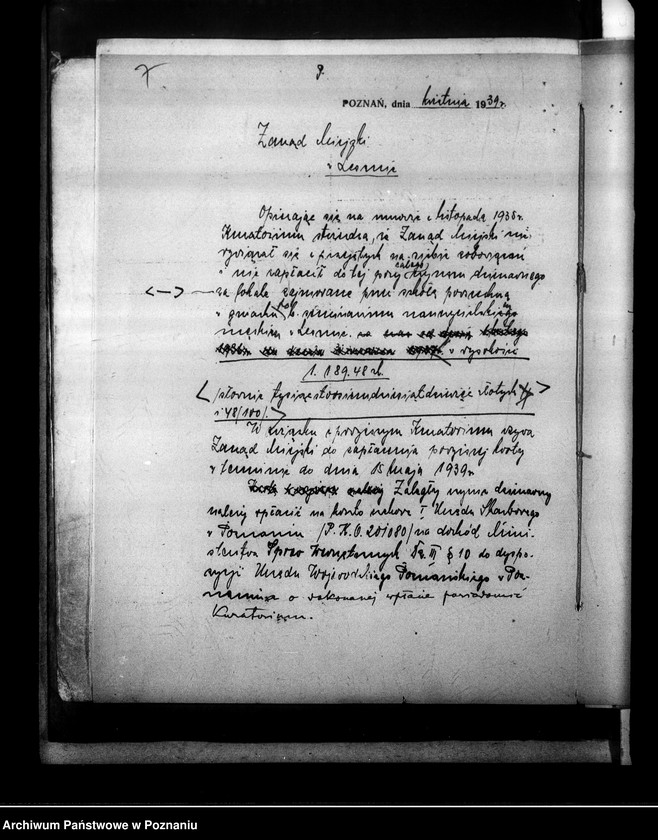 9.
POZNAŃ, dnia kwietnia 1939 r.
Zarząd Miejski
w Lesznie
Opierając się na umowie z listopada 1938 r.
Kuratorium stwierdza, że Zarząd Miejski nie
wywiązał się z przyjętych na siebie zobowiązań
i nie zapłacił do tej pory czynszu dzierżawnego
za lokale zajmowane przez szkołę powszechną
w gmachu b. seminarium nauczycielskiego
męskiego w Lesznie w wysokości
1.189.48 zł.
/słownie tysiąc sto osiemdziesiąt dziewięć złotych
i 48/100/.
W związku z powyższym Kuratorium wzywa
Zarząd Miejski do zapłacenia powyższej kwoty
w terminie do dnia 15 maja 1939 r.
Zaległy czynsz dzierżawny
należy wpłacić na konto czekowe I Urzędu Skarbowego
w Poznaniu /P.K.O. 201080/ na dochód Mini-
sterstwa Spraw Wewnętrznych § 10 do dyspo-
zycji Urzędu Wojewódzkiego Poznańskiego w Poz-
naniu a o dokonanej wpłacie powiadomić
Kuratorium.
Archiwum Państwowe w Poznaniu